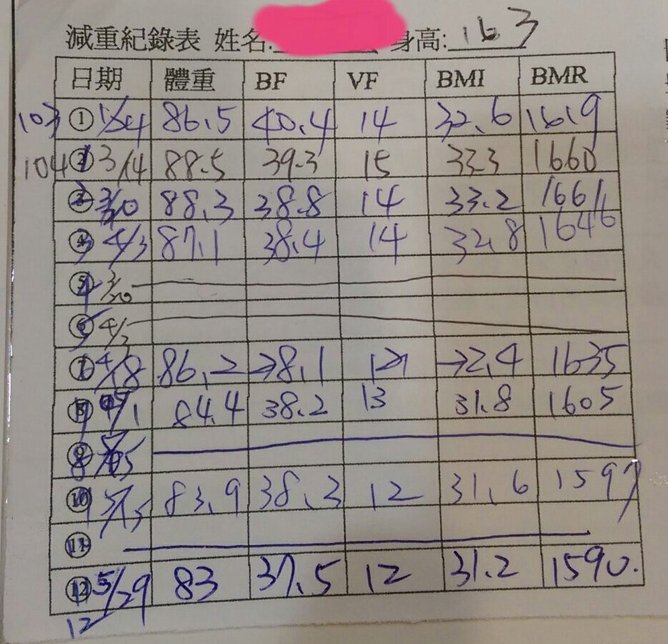 減重紀錄表 姓名: 身高: 163
日期 體重 BF VF BMI BMR
103 ① 86.5 40.4 14 32.6 1619
104 3/4 88.5 39.3 15 33.3 1660
3/20 88.3 38.8 14 33.2 1661
4/3 87.1 38.4 14 32.8 1646
⑤ 3/20
⑥ 4/3
⑦ 4/8 86.2 38.1 32.4 1635
⑧ 84.4 38.2 13 31.8 1605
⑨
⑩ 5/15 83.9 38.3 12 31.6 1597
⑪
⑫ 5/29 83 37.5 12 31.2 1590.
12